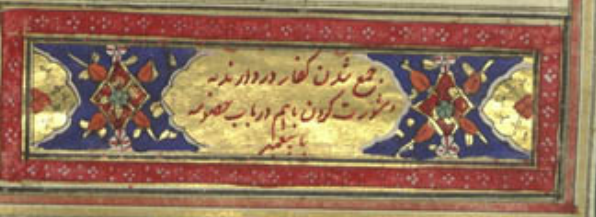 جمع شدن کفار در دار ندبه
و مشورت کردن باهم در باب خصومه
با پیغمبر